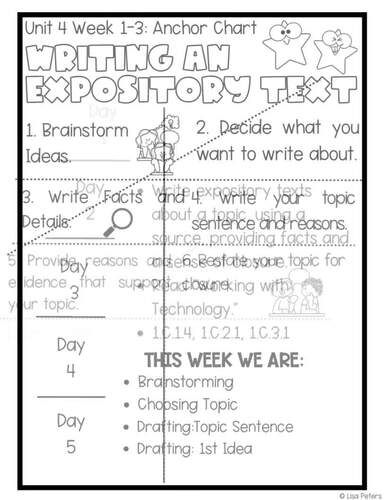 Unit 4 Week 1-3: Anchor Chart
WRITING AN
EXPOSITORY TEXT
1. Brainstorm
Ideas.
2. Decide what you
want to write about.
Day
3. Write Facts and
Details.
4. Write your topic
sentence and reasons.
Day
2
• Write expository texts
about a topic, using a
source, providing facts and
a sense of closure.
• Read "Working with
Technology."
• 1.C.1.4, 1.C.2.1, 1.C.3.1
5. Provide reasons and
evidence that support
your topic.
6. Restate your topic for
closure.
Day
3
Day
4
Day
5
THIS WEEK WE ARE:
• Brainstorming
• Choosing Topic
• Drafting:Topic Sentence
• Drafting: 1st Idea
© Lisa Peters